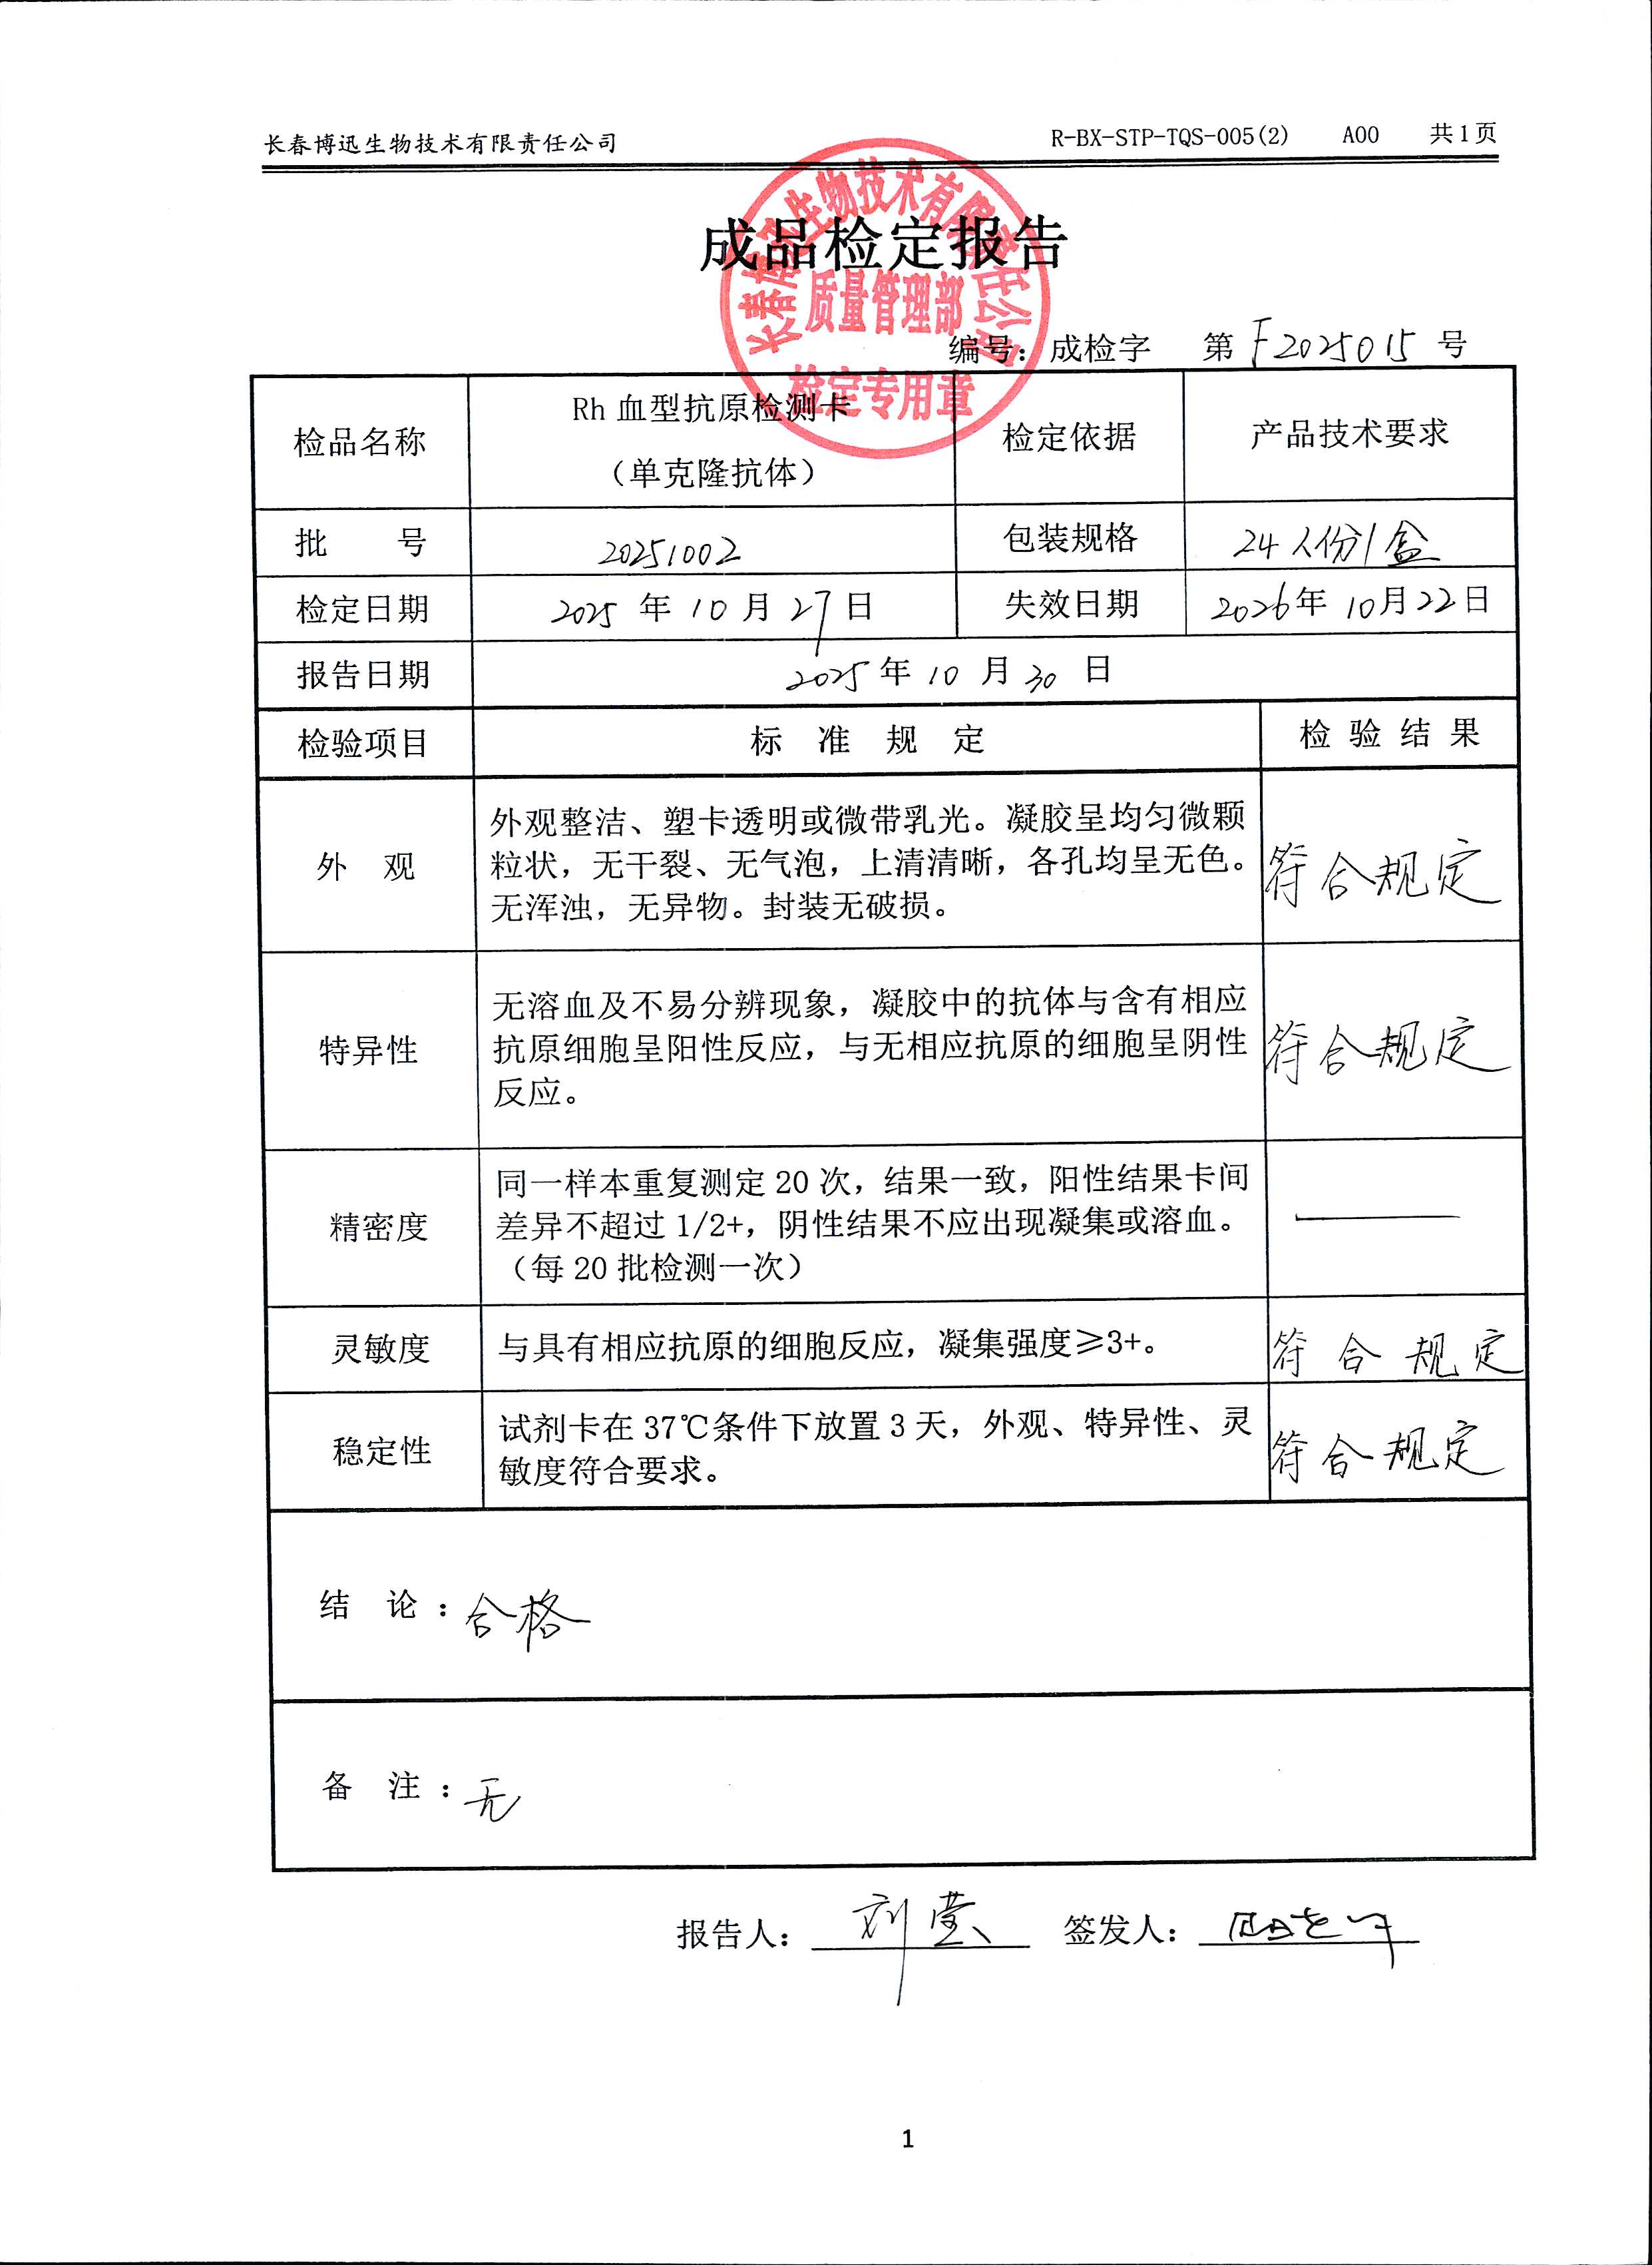 长春博迅生物技术有限责任公司 R-BX-STP-TQS-005(2) A00 共1页
长春博迅生物技术有限责任公司
质量管理部
检定专用章
成品检定报告
编号：成检字 第 F2025015 号
检品名称 Rh 血型抗原检测卡 检定依据 产品技术要求
（单克隆抗体）
批 号 20251002 包装规格 24人份/盒
检定日期 2025 年 10 月 27 日 失效日期 2026年 10月22日
报告日期 2025 年 10 月 30 日
检验项目 标 准 规 定 检 验 结 果
外 观
外观整洁、塑卡透明或微带乳光。凝胶呈均匀微颗
粒状，无干裂、无气泡，上清清晰，各孔均呈无色。
无浑浊，无异物。封装无破损。
符合规定
特异性
无溶血及不易分辨现象，凝胶中的抗体与含有相应
抗原细胞呈阳性反应，与无相应抗原的细胞呈阴性
反应。
符合规定
精密度
同一样本重复测定 20 次，结果一致，阳性结果卡间
差异不超过 1/2+，阴性结果不应出现凝集或溶血。
（每 20 批检测一次）
——
灵敏度 与具有相应抗原的细胞反应，凝集强度≥3+。 符合规定
稳定性
试剂卡在 37℃条件下放置 3 天，外观、特异性、灵
敏度符合要求。
符合规定
结 论：合格
备 注：无
报告人： 刘莹 签发人：
1